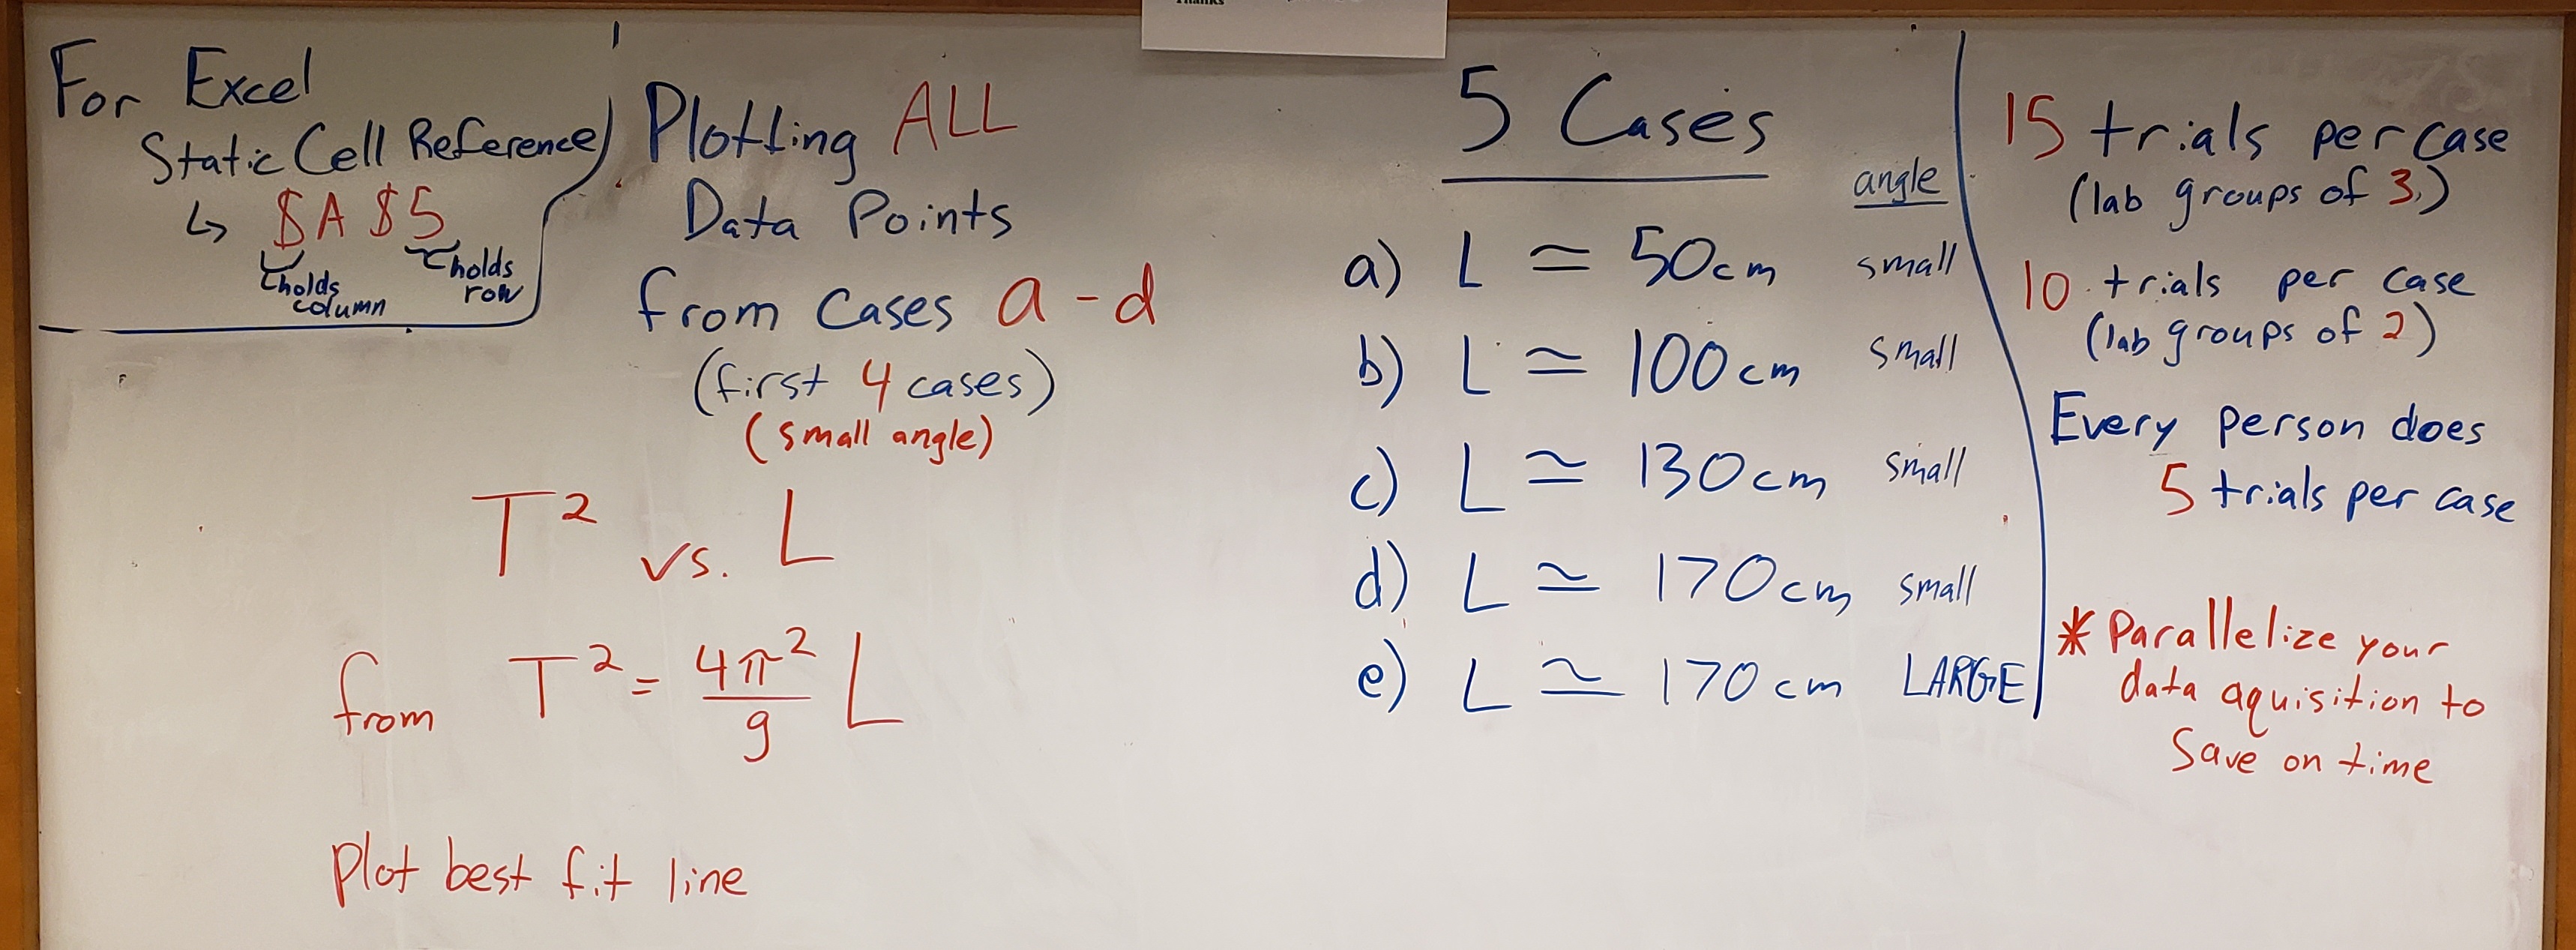 Thanks
For Excel
Static Cell Reference
↳ $A $5
holds column
holds row
Plotting ALL
Data Points
from Cases a - d
(first 4 cases)
(small angle)
T² vs. L
from T² = 4π²/g L
Plot best fit line
5 Cases
angle
a) L ≃ 50cm small
b) L ≃ 100cm small
c) L ≃ 130cm small
d) L ≃ 170cm small
e) L ≃ 170cm LARGE
15 trials per case
(lab groups of 3)
10 trials per case
(lab groups of 2)
Every person does
5 trials per case
* Parallelize your
data aquisition to
Save on time